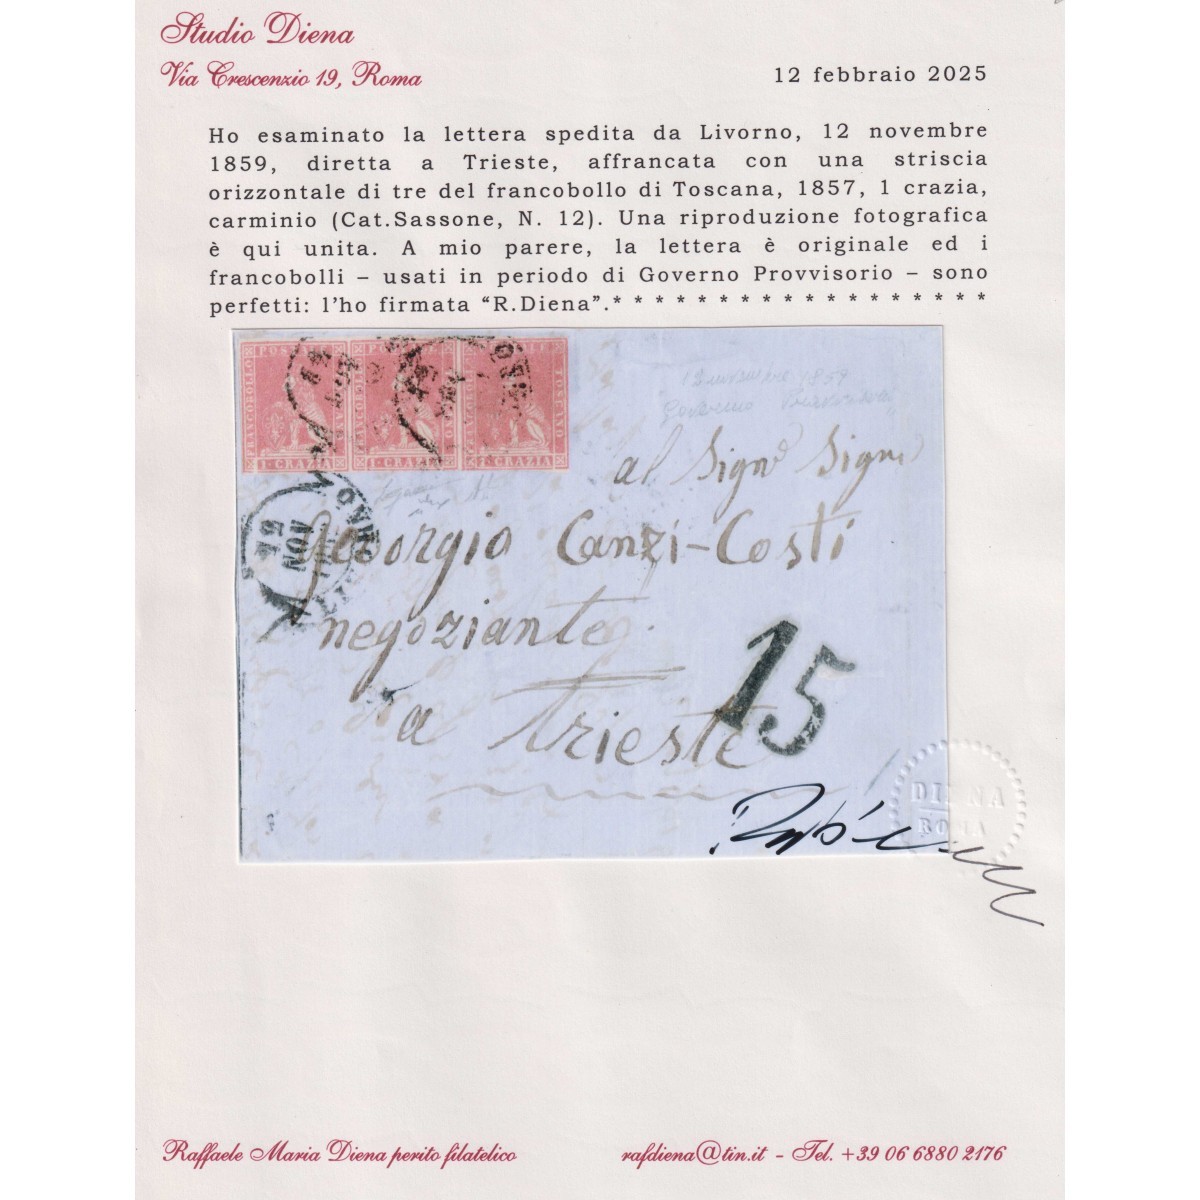 Studio Diena
Via Crescenzio 19, Roma
12 febbraio 2025
Ho esaminato la lettera spedita da Livorno, 12 novembre
1859, diretta a Trieste, affrancata con una striscia
orizzontale di tre del francobollo di Toscana, 1857, 1 crazia,
carminio (Cat.Sassone, N. 12). Una riproduzione fotografica
è qui unita. A mio parere, la lettera è originale ed i
francobolli – usati in periodo di Governo Provvisorio – sono
perfetti: l'ho firmata “R.Diena”.* * * * * * * * * * * * * * * * * *
FRANCOBOLLO POSTALE TOSCANO
1 CRAZIA 1 CRAZIA 1 CRAZIA
12 novembre 1859
Governo Provvisorio
al Sigr Sigr
Georgio Canzi-Costi
12
NOV
LIVORNO
negoziante
15
a Trieste
DIENA
ROMA
Raffaele Maria Diena perito filatelico
rafdiena@tin.it - Tel. +39 06 6880 2176